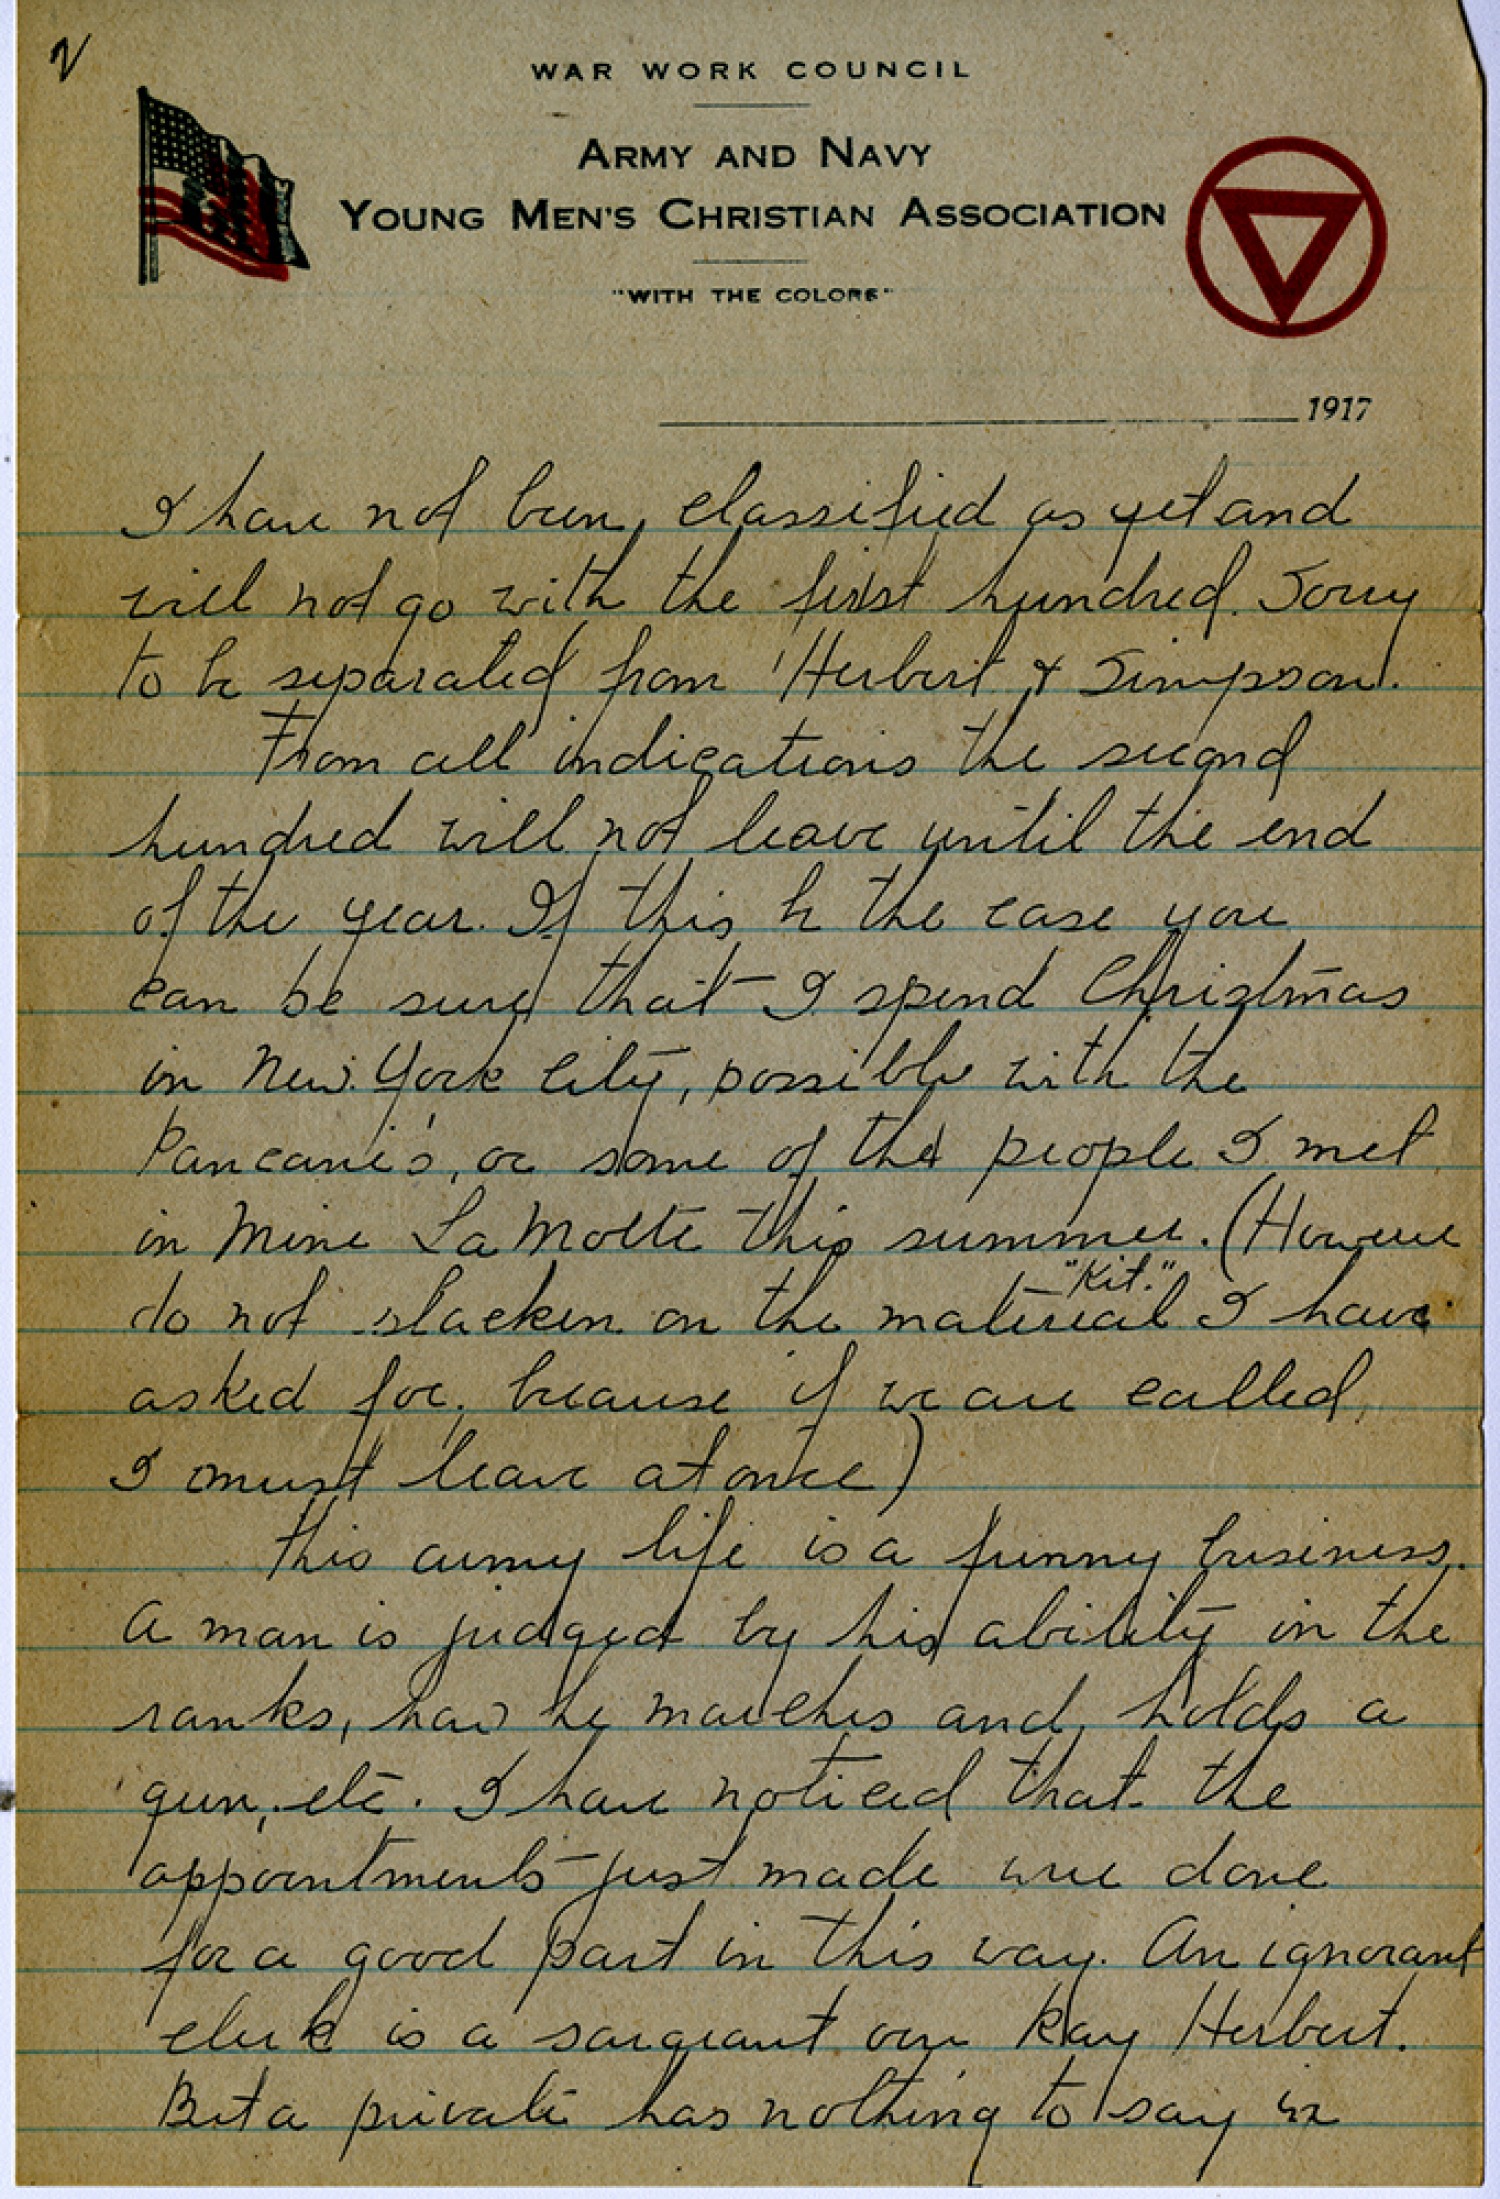 2
WAR WORK COUNCIL
ARMY AND NAVY
YOUNG MEN'S CHRISTIAN ASSOCIATION
"WITH THE COLORS"
1917
I have not been, classified as yet and
will not go with the first hundred. Sorry
to be separated from Herbert & Simpson.
From all indications the second
hundred will not leave until the end
of the year. If this be the case you
can be sure that I spend Christmas
in New York City, possible with the
Pancani's, or some of the people I met
in Mine La Motte this summer. (However
"Kit."
do not slacken on the material I have
asked for, because if we are called,
I must leave at once)
This army life is a funny business.
A man is judged by his ability in the
ranks, how he marches and, holds a
gun, etc. I have noticed that the
appointments just made were done
for a good part in this way. An ignorant
clerk is a sargeant over Ray Herbert.
But a private has nothing to say in